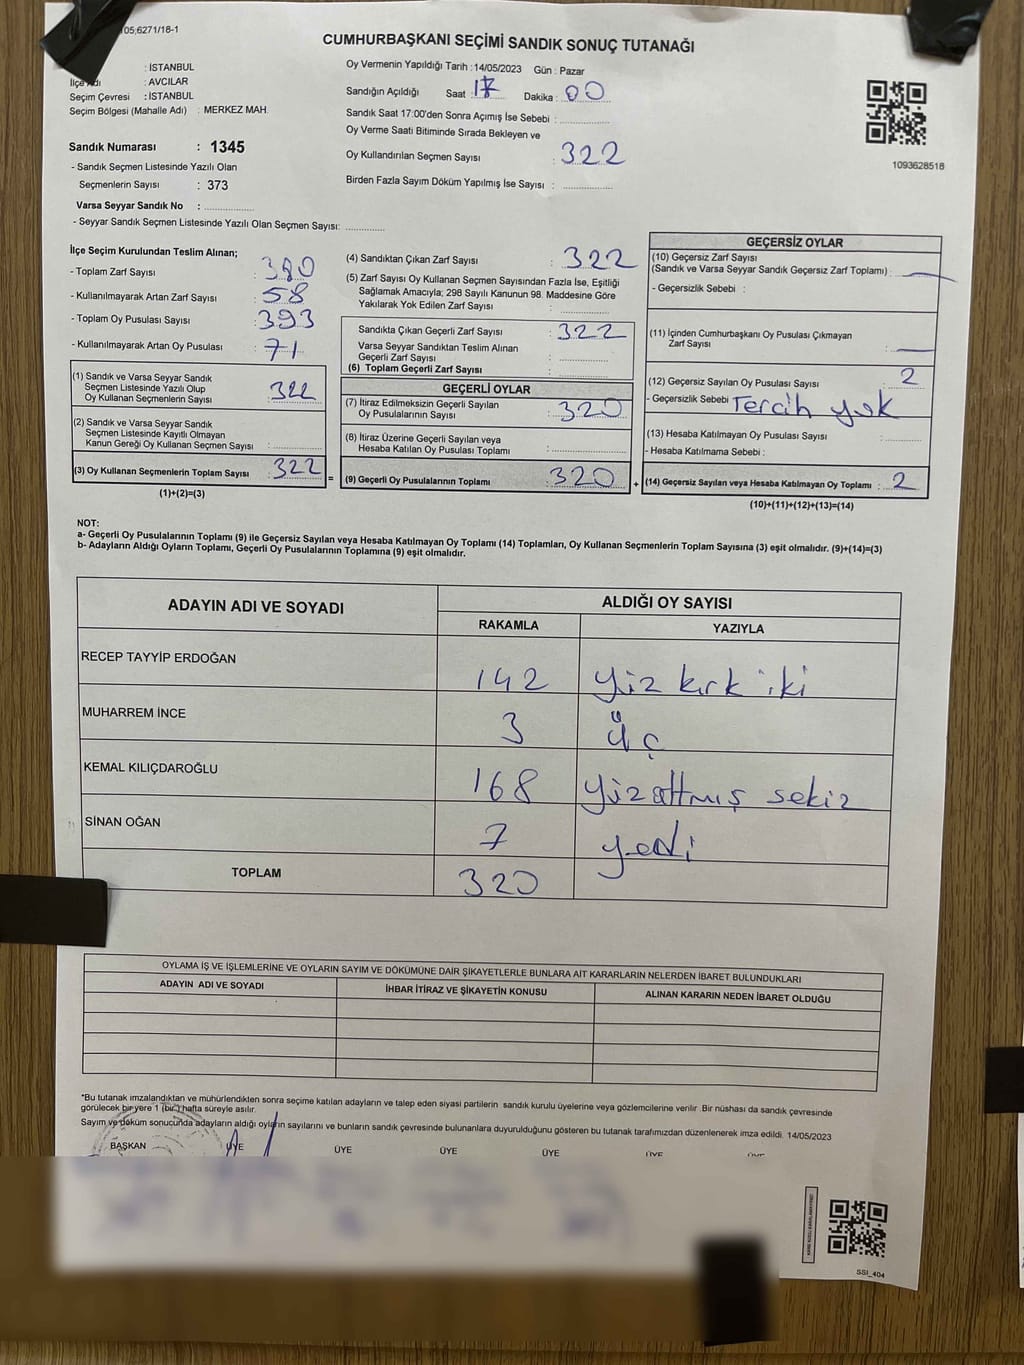 05;6271/18-1
CUMHURBAŞKANI SEÇİMİ SANDIK SONUÇ TUTANAĞI
: İSTANBUL
İlçe Adı : AVCILAR
Seçim Çevresi : İSTANBUL
Seçim Bölgesi (Mahalle Adı) : MERKEZ MAH.
Sandık Numarası : 1345
- Sandık Seçmen Listesinde Yazılı Olan
Seçmenlerin Sayısı : 373
Varsa Seyyar Sandık No :
- Seyyar Sandık Seçmen Listesinde Yazılı Olan Seçmen Sayısı:
Oy Vermenin Yapıldığı Tarih : 14/05/2023 Gün : Pazar
Sandığın Açıldığı Saat : 17 Dakika : 00
Sandık Saat 17:00'den Sonra Açımış İse Sebebi :
Oy Verme Saati Bitiminde Sırada Bekleyen ve
Oy Kullandırılan Seçmen Sayısı : 322
Birden Fazla Sayım Döküm Yapılmış İse Sayısı :
1093628518
İlçe Seçim Kurulundan Teslim Alınan;
- Toplam Zarf Sayısı : 380
- Kullanılmayarak Artan Zarf Sayısı : 58
- Toplam Oy Pusulası Sayısı : 393
- Kullanılmayarak Artan Oy Pusulası : 71
(1) Sandık ve Varsa Seyyar Sandık
Seçmen Listesinde Yazılı Olup
Oy Kullanan Seçmenlerin Sayısı : 322
(2) Sandık ve Varsa Seyyar Sandık
Seçmen Listesinde Kayıtlı Olmayan
Kanun Gereği Oy Kullanan Seçmen Sayısı :
(3) Oy Kullanan Seçmenlerin Toplam Sayısı : 322
(1)+(2)=(3)
=
(4) Sandıktan Çıkan Zarf Sayısı : 322
(5) Zarf Sayısı Oy Kullanan Seçmen Sayısından Fazla İse, Eşitliği
Sağlamak Amacıyla; 298 Sayılı Kanunun 98. Maddesine Göre
Yakılarak Yok Edilen Zarf Sayısı :
Sandıkta Çıkan Geçerli Zarf Sayısı : 322
Varsa Seyyar Sandıktan Teslim Alınan
Geçerli Zarf Sayısı :
(6) Toplam Geçerli Zarf Sayısı :
GEÇERLİ OYLAR
(7) İtiraz Edilmeksizin Geçerli Sayılan
Oy Pusulalarının Sayısı : 320
(8) İtiraz Üzerine Geçerli Sayılan veya
Hesaba Katılan Oy Pusulası Toplamı :
(9) Geçerli Oy Pusulalarının Toplamı : 320
+
GEÇERSİZ OYLAR
(10) Geçersiz Zarf Sayısı
(Sandık ve Varsa Seyyar Sandık Geçersiz Zarf Toplamı) : —
- Geçersizlik Sebebi :
(11) İçinden Cumhurbaşkanı Oy Pusulası Çıkmayan
Zarf Sayısı : —
(12) Geçersiz Sayılan Oy Pusulası Sayısı : 2
- Geçersizlik Sebebi : Tercih yok
(13) Hesaba Katılmayan Oy Pusulası Sayısı :
- Hesaba Katılmama Sebebi :
(14) Geçersiz Sayılan veya Hesaba Katılmayan Oy Toplamı : 2
(10)+(11)+(12)+(13)=(14)
NOT:
a- Geçerli Oy Pusulalarının Toplamı (9) ile Geçersiz Sayılan veya Hesaba Katılmayan Oy Toplamı (14) Toplamları, Oy Kullanan Seçmenlerin Toplam Sayısına (3) eşit olmalıdır. (9)+(14)=(3)
b- Adayların Aldığı Oyların Toplamı, Geçerli Oy Pusulalarının Toplamına (9) eşit olmalıdır.
ADAYIN ADI VE SOYADI ALDIĞI OY SAYISI
RAKAMLA YAZIYLA
RECEP TAYYİP ERDOĞAN 142 yüz kırk iki
MUHARREM İNCE 3 üç
KEMAL KILIÇDAROĞLU 168 yüz altmış sekiz
SİNAN OĞAN 7 yedi
TOPLAM 320
OYLAMA İŞ VE İŞLEMLERİNE VE OYLARIN SAYIM VE DÖKÜMÜNE DAİR ŞİKAYETLERLE BUNLARA AİT KARARLARIN NELERDEN İBARET BULUNDUKLARI
ADAYIN ADI VE SOYADI İHBAR İTİRAZ VE ŞİKAYETİN KONUSU ALINAN KARARIN NEDEN İBARET OLDUĞU
*Bu tutanak imzalandıktan ve mühürlendikten sonra seçime katılan adayların ve talep eden siyasi partilerin sandık kurulu üyelerine veya gözlemcilerine verilir. Bir nüshası da sandık çevresinde
görülecek bir yere 1 (bir) hafta süreyle asılır.
Sayım ve döküm sonucunda adayların aldığı oyların sayılarını ve bunların sandık çevresinde bulunanlara duyurulduğunu gösteren bu tutanak tarafımızdan düzenlenerek imza edildi. 14/05/2023
BAŞKAN ÜYE ÜYE ÜYE ÜYE ÜYE ÜYE
SSI_404